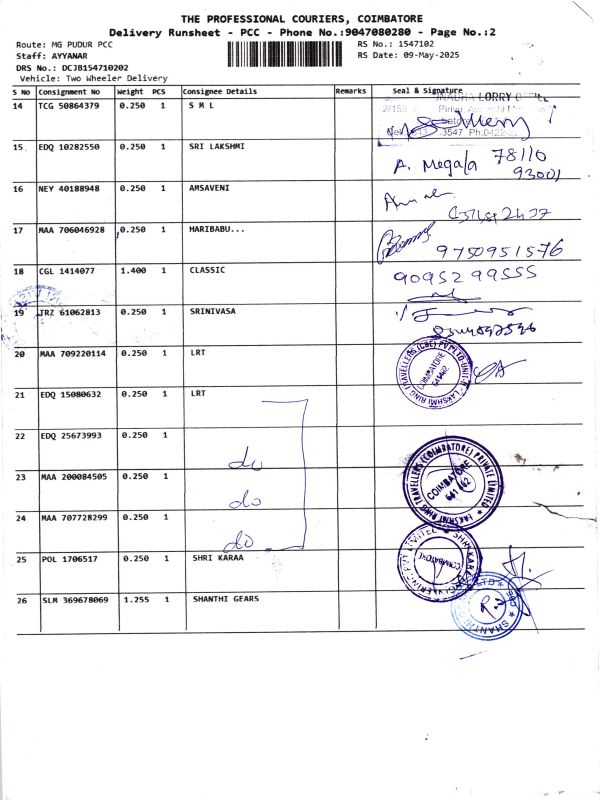 THE PROFESSIONAL COURIERS, COIMBATORE
Delivery Runsheet - PCC - Phone No.:9047080280 - Page No.:2
Route: MG PUDUR PCC RS No.: 1547102
Staff: AYYANAR RS Date: 09-May-2025
DRS No.: DCJB154710202
Vehicle: Two Wheeler Delivery
S No Consignment No Weight PCS Consignee Details Remarks Seal & Signature
14 TCG 50864379 0.250 1 S M L
LORRY
15 EDQ 10282550 0.250 1 SRI LAKSHMI A. Megala 78110
93001
16 NEY 40188948 0.250 1 AMSAVENI
17 MAA 706046928 0.250 1 HARIBABU... 9750951576
18 CGL 1414077 1.400 1 CLASSIC 9095299555
19 TRZ 61062813 0.250 1 SRINIVASA
20 MAA 709220114 0.250 1 LRT
LAKSHMI RING TRAVELLERS (CBE) PVT LTD-UNIT-II
COIMBATORE
641402
21 EDQ 15080632 0.250 1 LRT
22 EDQ 25673993 0.250 1 do
LAKSHMI RING TRAVELLERS (COIMBATORE) PRIVATE LIMITED
COIMBATORE
641 402
23 MAA 200084505 0.250 1 do
24 MAA 707728299 0.250 1 do
25 POL 1706517 0.250 1 SHRI KARAA
COIMBATORE
26 SLM 369678069 1.255 1 SHANTHI GEARS
SHANTHI